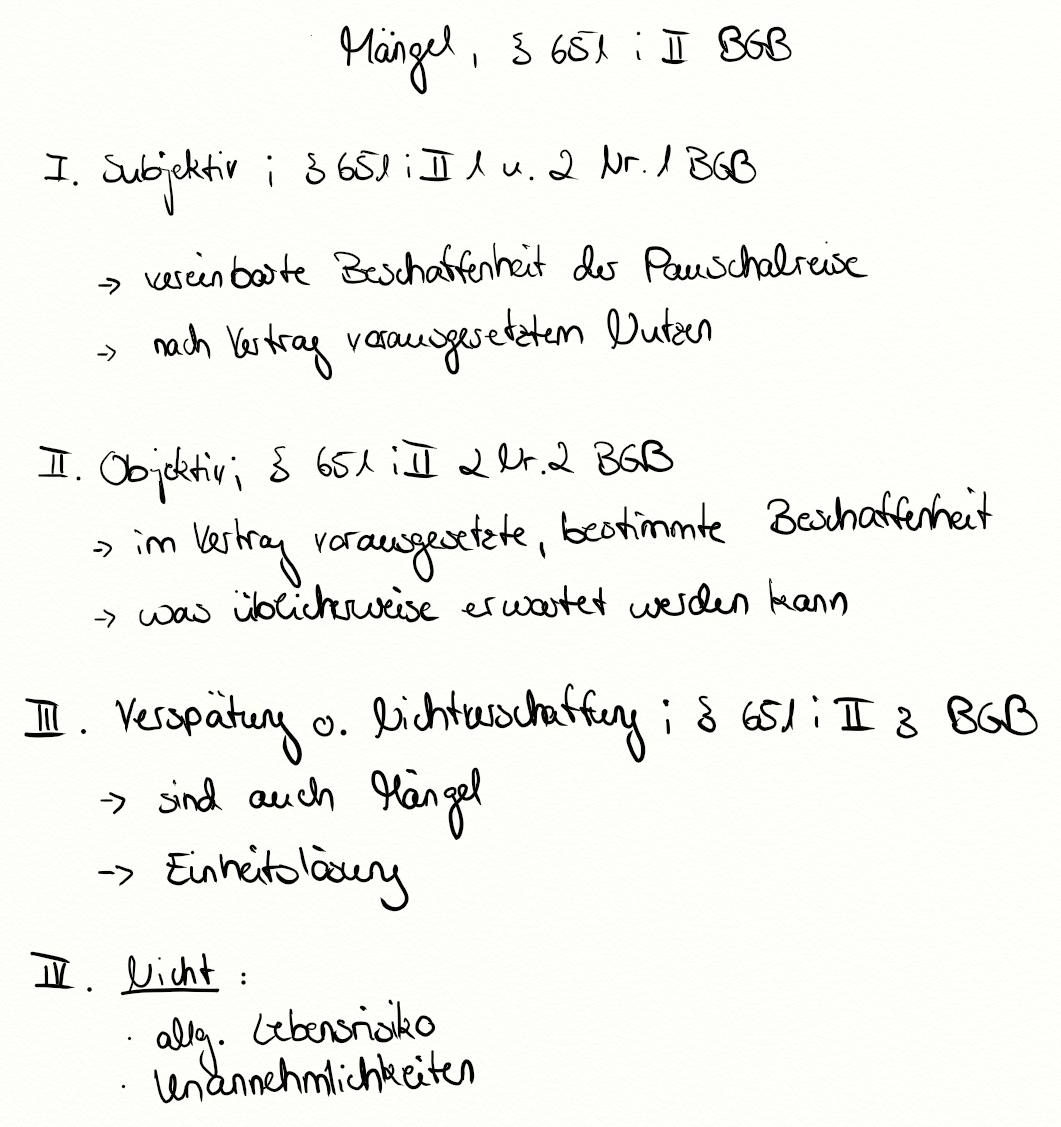 Mängel, § 651 i II BGB
I. Subjektiv; § 651 i II 1 u. 2 Nr. 1 BGB
→ vereinbarte Beschaffenheit der Pauschalreise
→ nach Vertrag vorausgesetztem Nutzen
II. Objektiv; § 651 i II 2 Nr. 2 BGB
→ im Vertrag vorausgesetzte, bestimmte Beschaffenheit
→ was üblicherweise erwartet werden kann
III. Verspätung o. Nichtverschaffung; § 651 i II 3 BGB
→ sind auch Mängel
→ Einheitslösung
IV. Nicht:
· allg. Lebensrisiko
· Unannehmlichkeiten